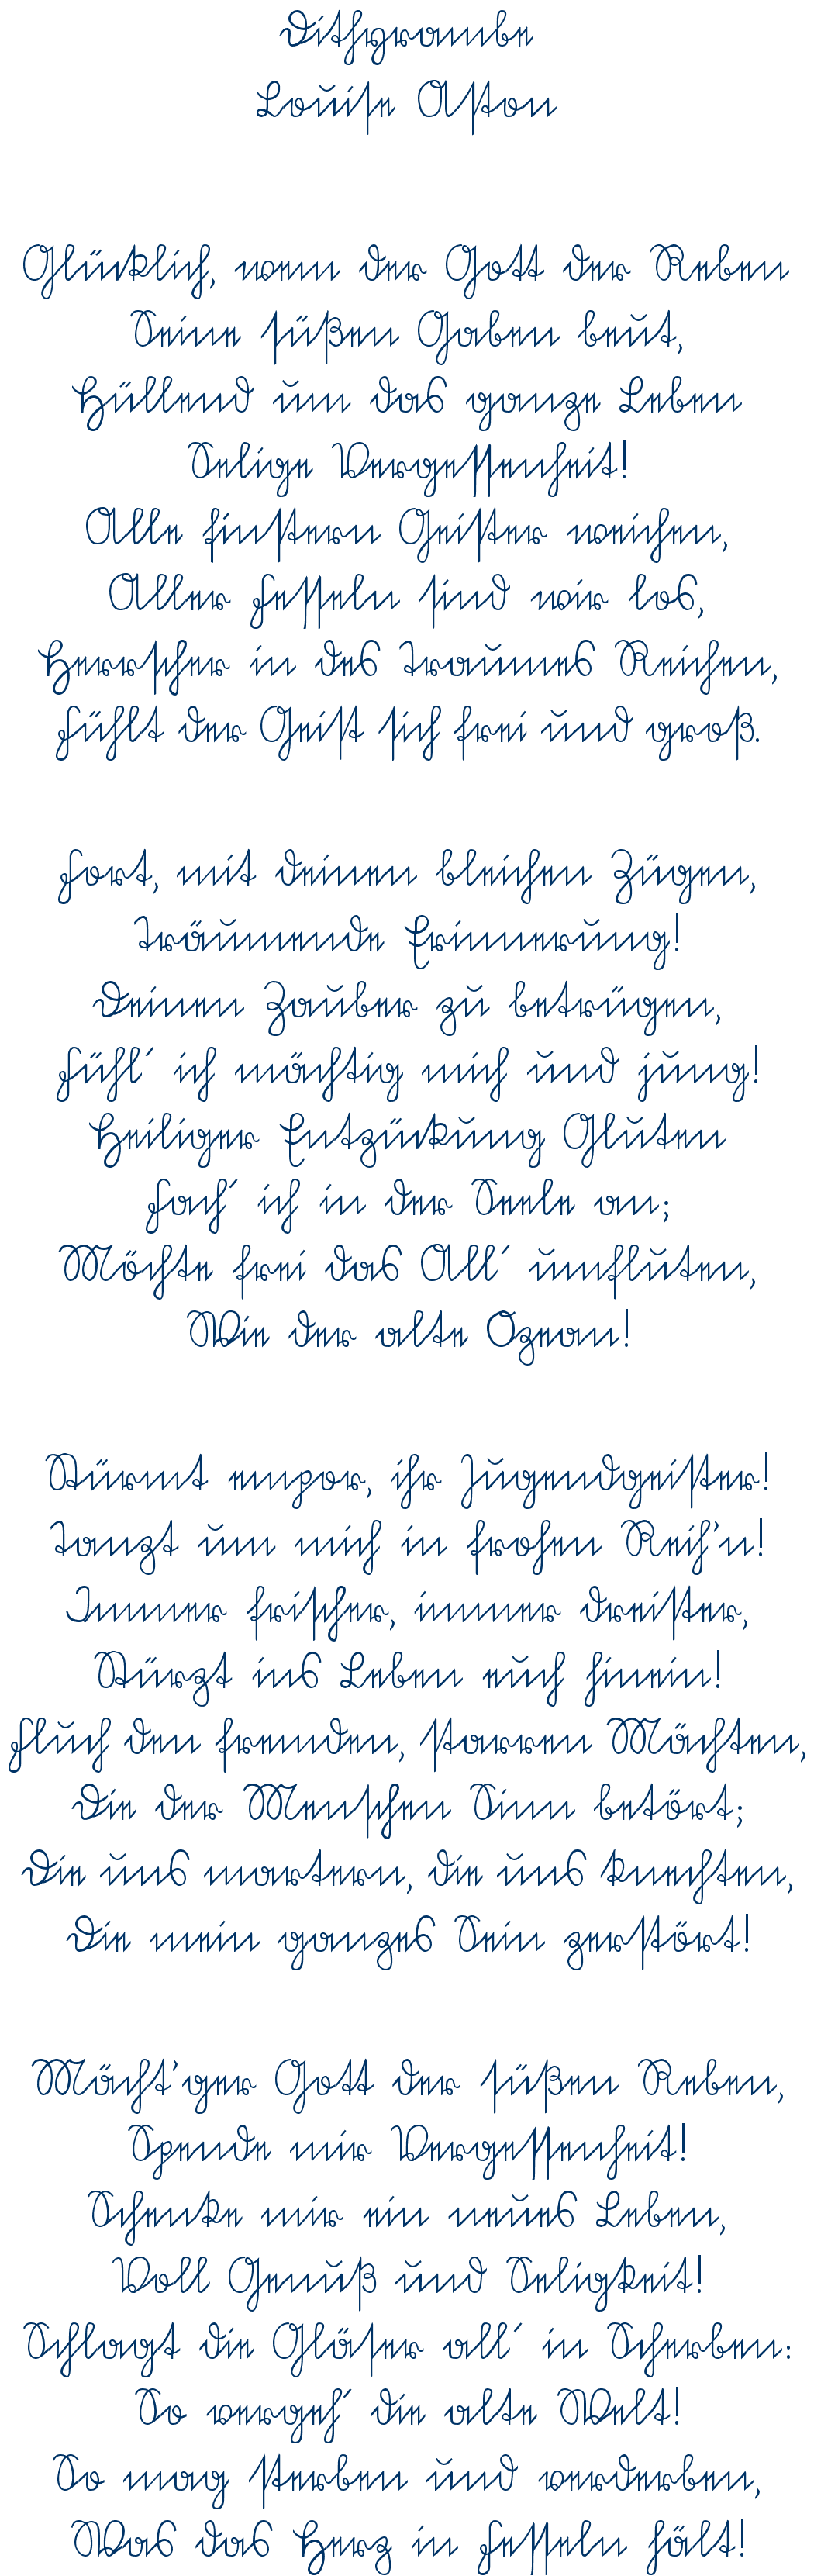 Dithyrambe
Louise Aston
Glücklich, wem der Gott der Reben
Seine süßen Gaben beut,
Hüllend um das ganze Leben
Selige Vergessenheit!
Alle finstern Geister weichen,
Aller Fesseln sind wir los,
Herrscher in des Traumes Reichen,
Fühlt der Geist sich frei und groß.
Fort, mit deinen bleichen Zügen,
Träumende Erinnerung!
Deinen Zauber zu betrügen,
Fühl´ ich mächtig mich und jung!
Heiliger Entzückung Gluten
Fach´ ich in der Seele an;
Möchte frei das All´ umfluten,
Wie der alte Ozean!
Stürmt empor, ihr Jugendgeister!
Tanzt um mich in frohen Reih’n!
Immer frischer, immer dreister,
Stürzt ins Leben euch hinein!
Fluch den fremden, starren Mächten,
Die der Menschen Sinn betört;
Die uns martern, die uns knechten,
Die mein ganzes Sein zerstört!
Mächt’ger Gott der süßen Reben,
Spende mir Vergessenheit!
Schenke mir ein neues Leben,
Voll Genuß und Seligkeit!
Schlagt die Gläser all´ in Scherben:
So vergeh´ die alte Welt!
So mag sterben und verderben,
Was das Herz in Fesseln hält!